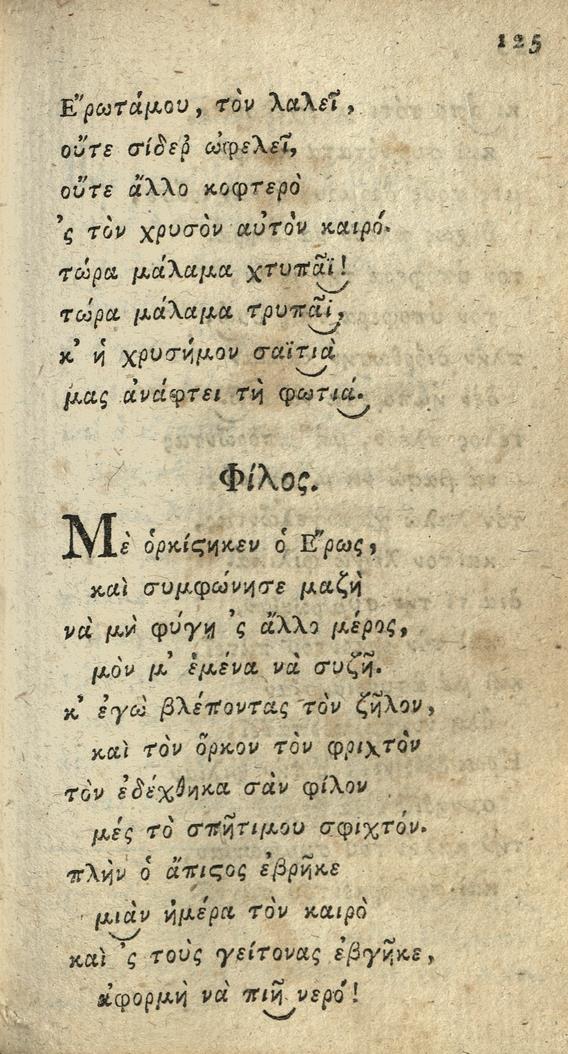 125
Ἔρωτάμου, τὸν λαλεῖ,
οὔτε σίδερ᾽ ὠφελεῖ,
οὔτε ἄλλο κοφτερὸ
᾽ς τὸν χρυσὸν αὐτὸν καιρό.
τώρα μάλαμα χτυπᾶϊ!
τώρα μάλαμα τρυπᾶϊ,
κ᾽ ἡ χρυσήμου σαϊτιὰ
μας ἀνάφτει τὴ φωτιά.
Φίλος.
Μὲ ὁρκίϛηκεν ὁ Ἔρως,
καὶ συμφώνησε μαζὴ
νὰ μὴ φύγῃ ᾽ς ἄλλο μέρος,
μὸν μ᾽ ἐμένα νὰ συζῇ.
κ᾽ ἐγὼ βλέποντας τὸν ζῆλον,
καὶ τὸν ὅρκον τὸν φριχτὸν
τὸν ἐδέχθηκα σὰν φίλον
μές τὸ σπῆτιμου σφιχτόν.
πλὴν ὁ ἄπιϛος ἐβρῆκε
μιὰν ἡμέρα τὸν καιρὸ
καὶ ᾽ς τοὺς γείτονας ἐβγῆκε,
ἀφορμὴ νὰ πιῇ νερό!